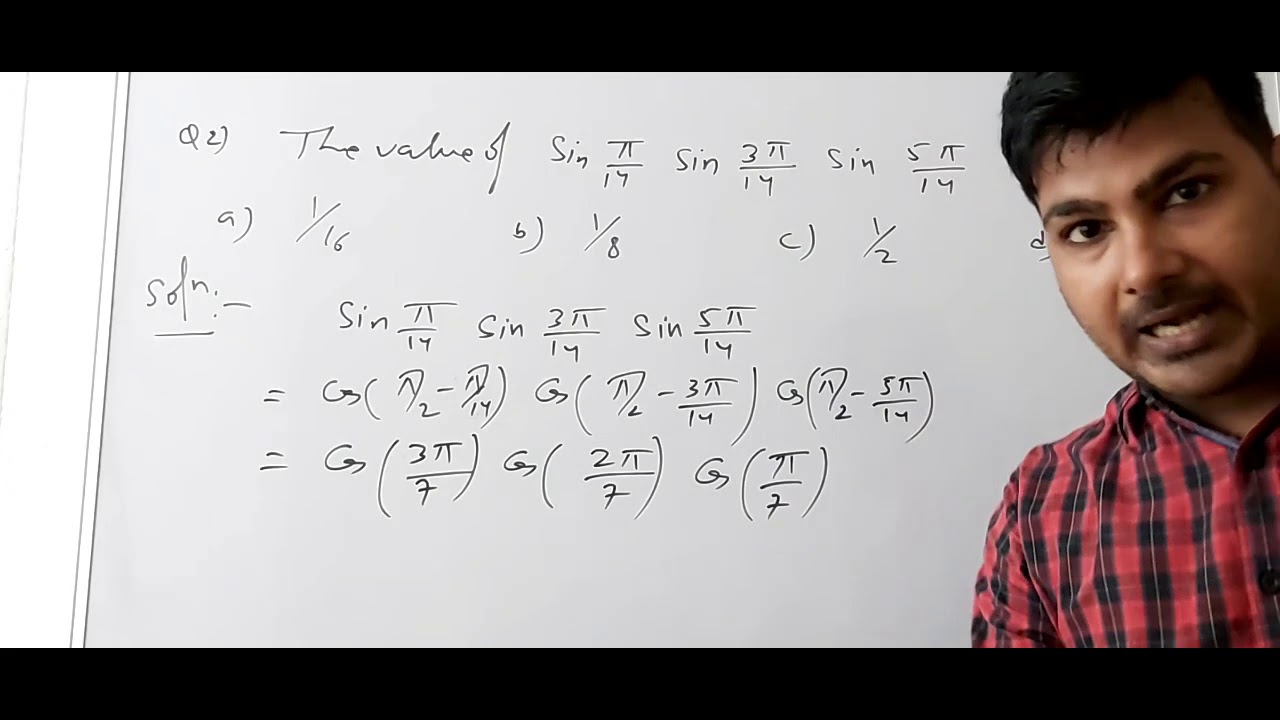 Q2) The value of Sin π/14 Sin 3π/14 Sin 5π/14
a) 1/16 b) 1/8 c) 1/2 d)
Soln:-
Sin π/14 Sin 3π/14 Sin 5π/14
= Cos(π/2 - π/14) Cos(π/2 - 3π/14) Cos(π/2 - 5π/14)
= Cos(3π/7) Cos(2π/7) Cos(π/7)